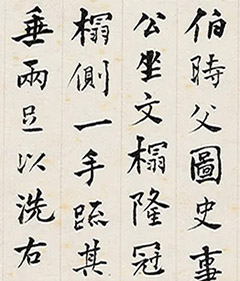 伯時父圖史事
公坐文榻隆冠
榻側一手踞其
垂兩足以洗右